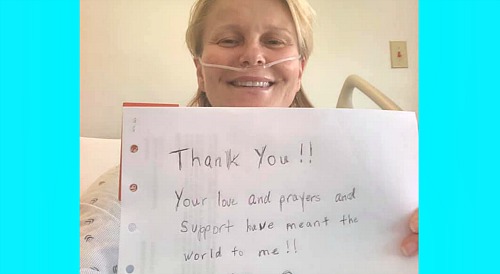 Thank You!!
Your love and prayers and
support have meant the
world to me!!